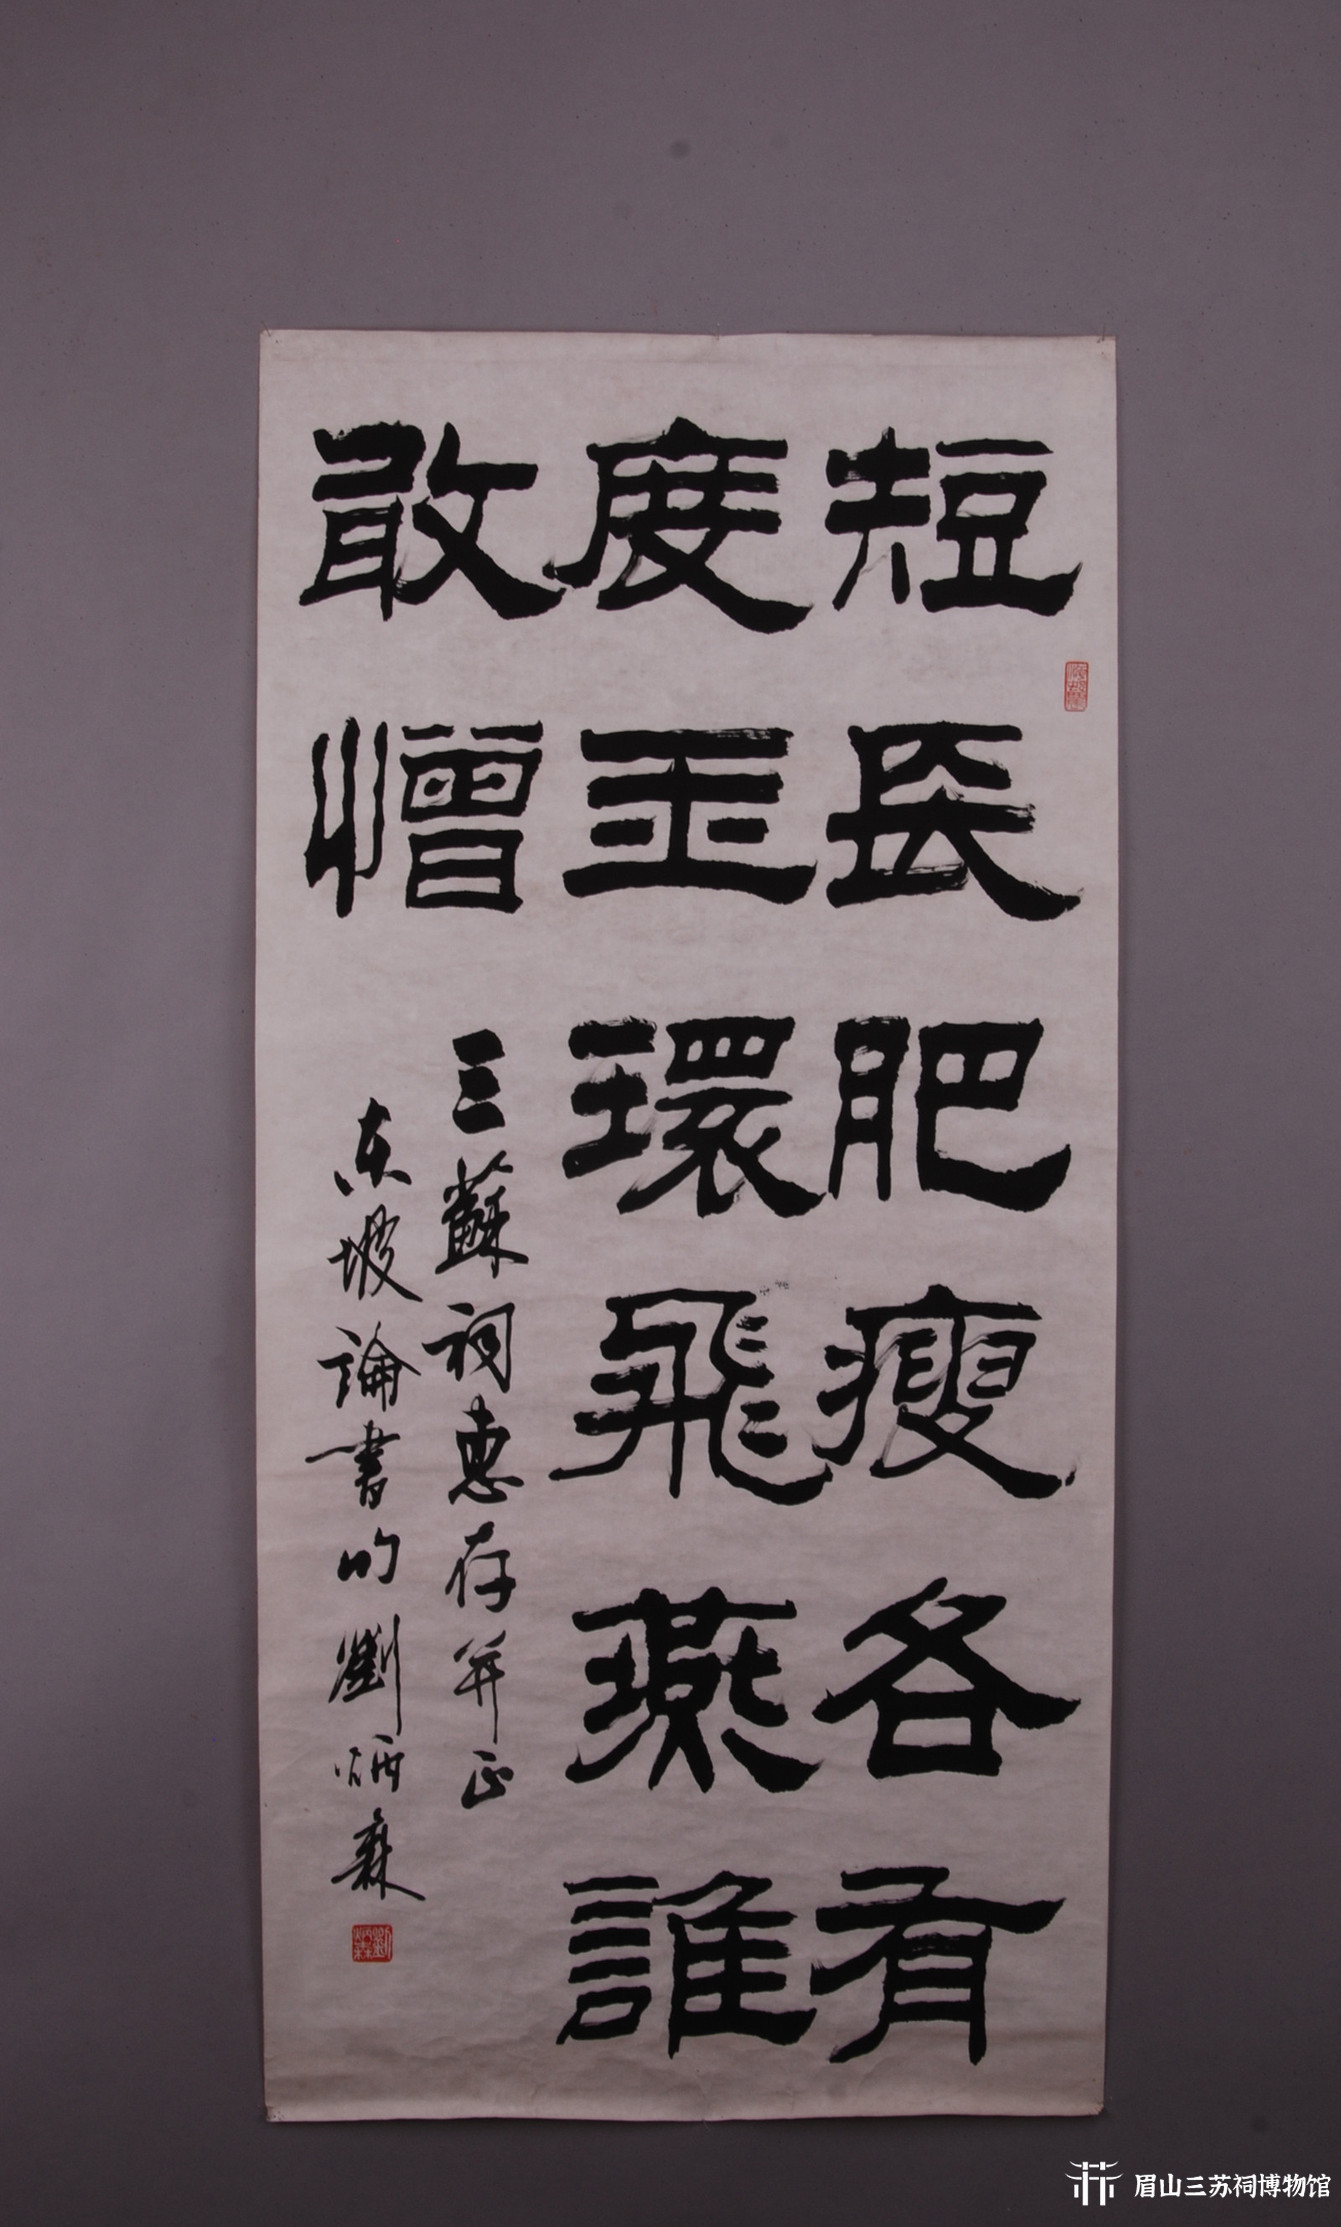 短長肥瘦各有
度玉環飛燕誰
敢憎
三蘇祠惠存并正
东坡論書句劉炳森
劉炳森
眉山三苏祠博物馆